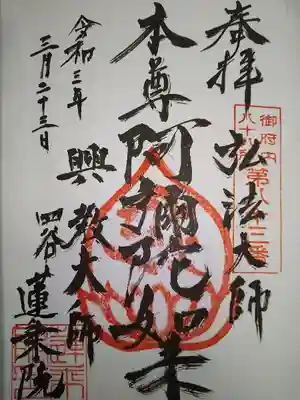 奉拝 弘法大師
御府内
八十八
第八十三番
本尊阿彌陀如来
興教大師
四谷 蓮乗院
令和三年
三月二十三日